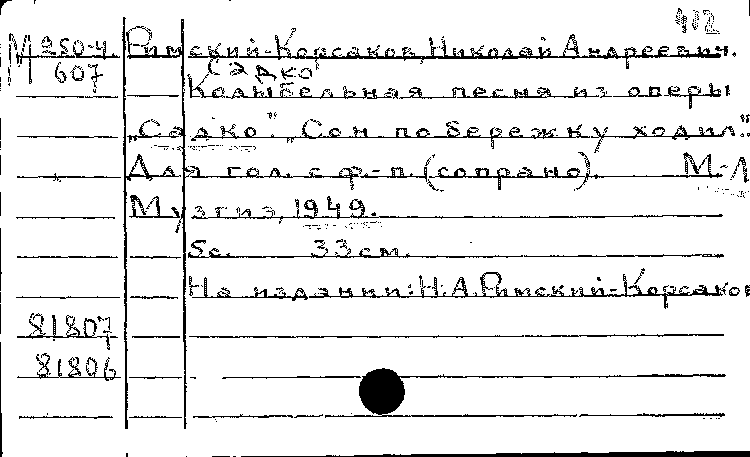 412
М 250-4. Римский-Корсаков, Николай Андреевич.
607 Садко
Колыбельная песня из оперы
„Садко". „Сон по бережку ходил".
Для гол. с ф.-п. (сопрано). М.-Л
Музгиз, 1949.
5с. 33см.
На издании: Н.А. Римский-Корсаков
81807
81806